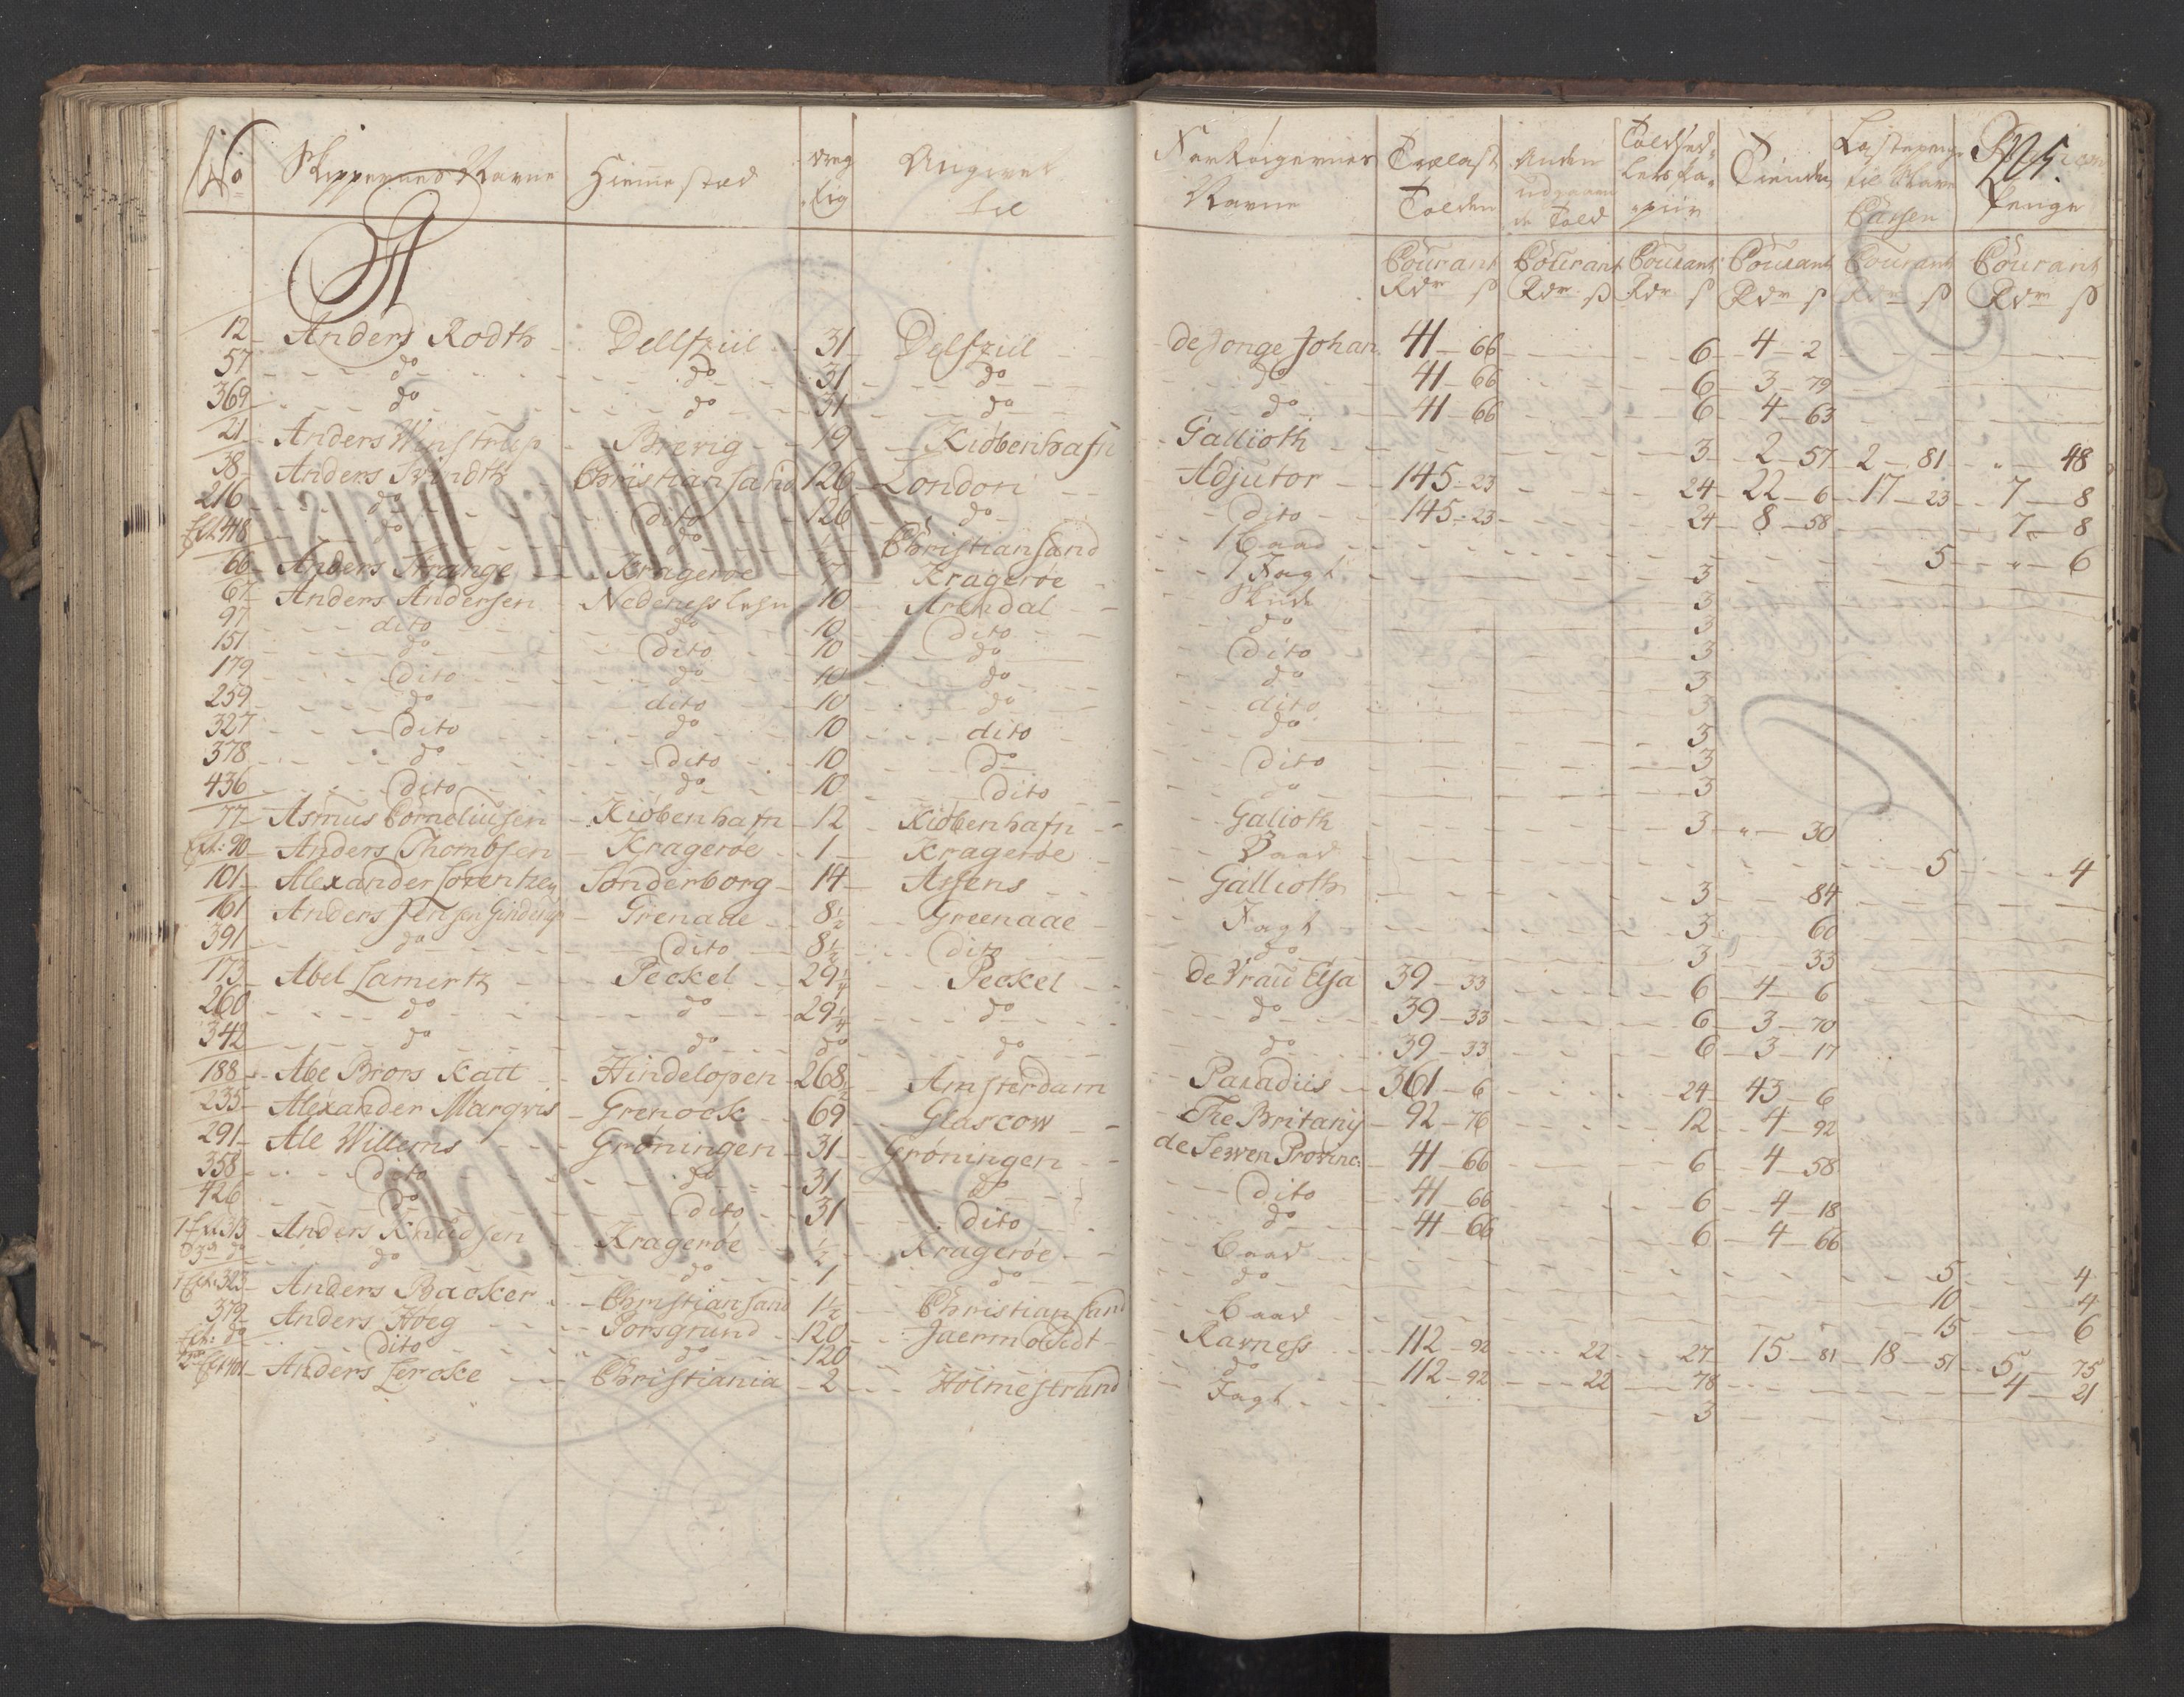 No Skippernes Navne Hiemestæd dreg tig Angivet til Fartøigernes Navne Trælast Tolden Anden udgaaen de Told Toldsed lers Pa piir Tiende Lastepenge til Slave Cassen Penge
A
Courant Courant Courant Courant Courant Courant
Rdr ß Rdr ß Rdr ß Rdr ß Rdr ß Rdr ß
12 Anders Rodth Dellfziil 31 Delfziil de Jonge Johan 41 66 6 4 2
57 do do 31 do do 41 66 6 3 79
369 do do 31 do do 41 66 6 4 63
21 Anders Winstrup Brevig 19 Kiøbenhafn Gallioth 3 2 57 2 81 " 48
38 Anders Svindth Christiansand 126 London Adjutor 145 23 24 22 6 17 23 7 8
216 do dito 126 do dito 145 23 24 8 58 7 8
Ext 418 do do ½ Christiansand 1 baad 5 " 6
66 Anders Strange Kragerøe 7 Kragerøe 1 Jagt 3
67 Anders Andersen Nedeness lehn 10 Arendal 3
97 dito do 10 dito do 3
151 do dito 10 do dito 3
179 dito do 10 do do 3
259 do dito 10 do dito 3
327 dito do 10 dito do 3
378 do dito 10 do dito 3
436 dito do 10 dito do 3
77 Asmus Corneliusen Kiøbenhafn 12 Kiøbenhafn Galioth 3 " 30
Ext: 90 Anders Thombsen Kragerøe 1 Kragerøe Baad 5 4
101 Alexander Lorentzen Sønderborg 14 Assens Gallioth 3 84
161 Anders Jensen Ginderup Grenaae 8½ Greenaae Jagt 3 60
391 do dito 8½ dito do 3 33
173 Abel Lamertz Peckel 29¼ Peckel de Vrau Elsa 39 33 6 4 6
260 do do 29¼ do do 39 33 6 3 70
342 do do do do do 39 33 6 3 17
188 Abe Brors Katt Hindelopen 268½ Amsterdam Paradiis 361 6 24 43 6
235 Alexander Marqvis Grenock 69 Glascow The Britany 92 76 12 4 92
291 Ale Willems Grøningen 31 Grøningen de Sewen Province 41 66 6 4 58
358 dito do 31 do dito 41 66 6 4 18
426 do dito 31 dito do 41 66 6 4 66
1 Ext 313 Anders Knudsen Kragerøe ½ Kragerøe baad 5 4
do do do 1 do do 10 4
1 Ext: 323 Anders Backer Christiansand 1½ Christiansand baad 15 6
379 Anders Høeg Porsgrund 120 Jaermouth Ravness 112 92 22 27 15 81 18 51 5 75
Ext: do dito do 120 do 112 92 22 78 4 21
2 Ext 401 Anders Lercke Christiania 2 Holmestrand Jagt 3